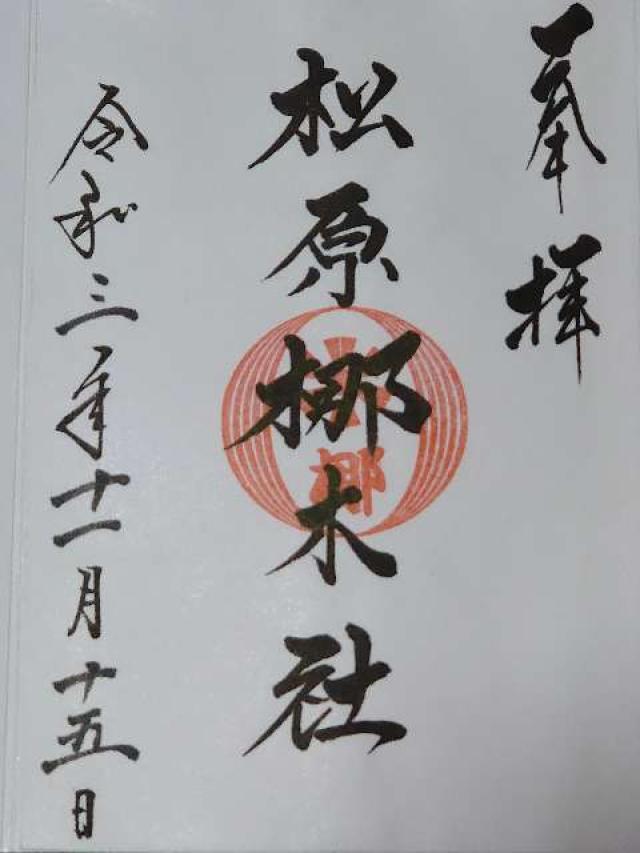 奉拝
松原梛木社
令和三年十一月十五日